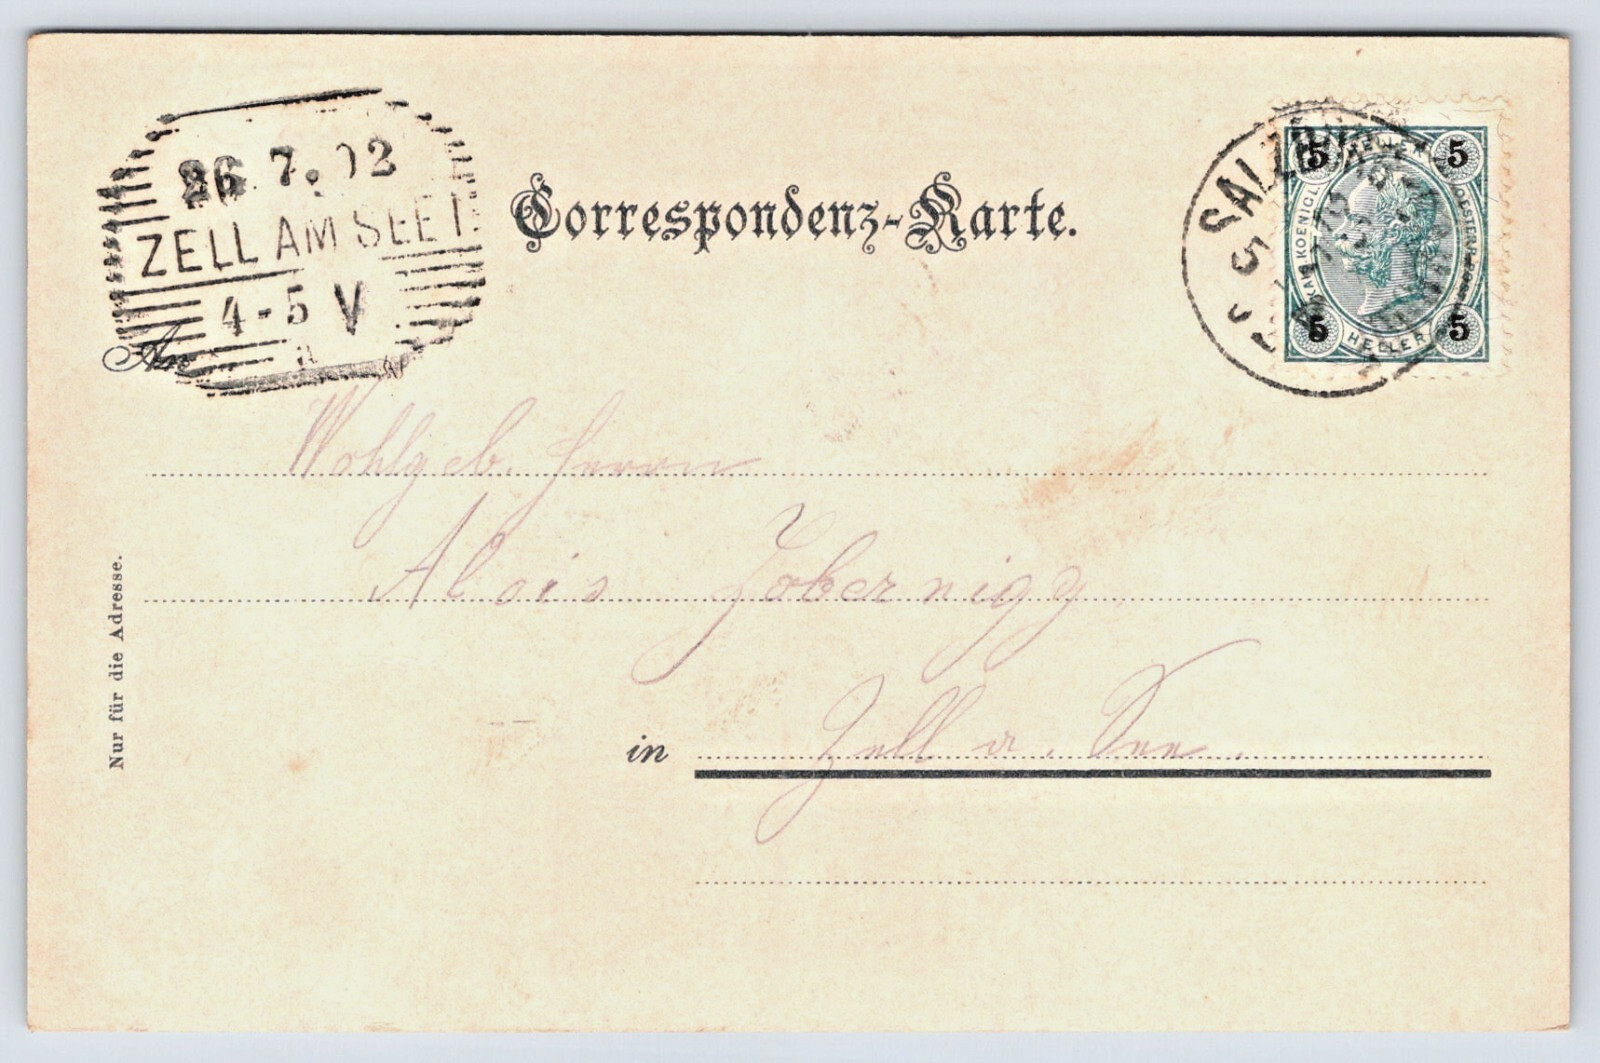 26. 7. 02
ZELL AM SEE
4-5 V
a
Correspondenz-Karte.
SALZBURG
5 HELLER 5
KAIS. KOENIGL.
OESTERR.
5 HELLER 5
An
Wohlgeb. Herrn
Alois Zobernigg
in Zell a. See.
Nur für die Adresse.